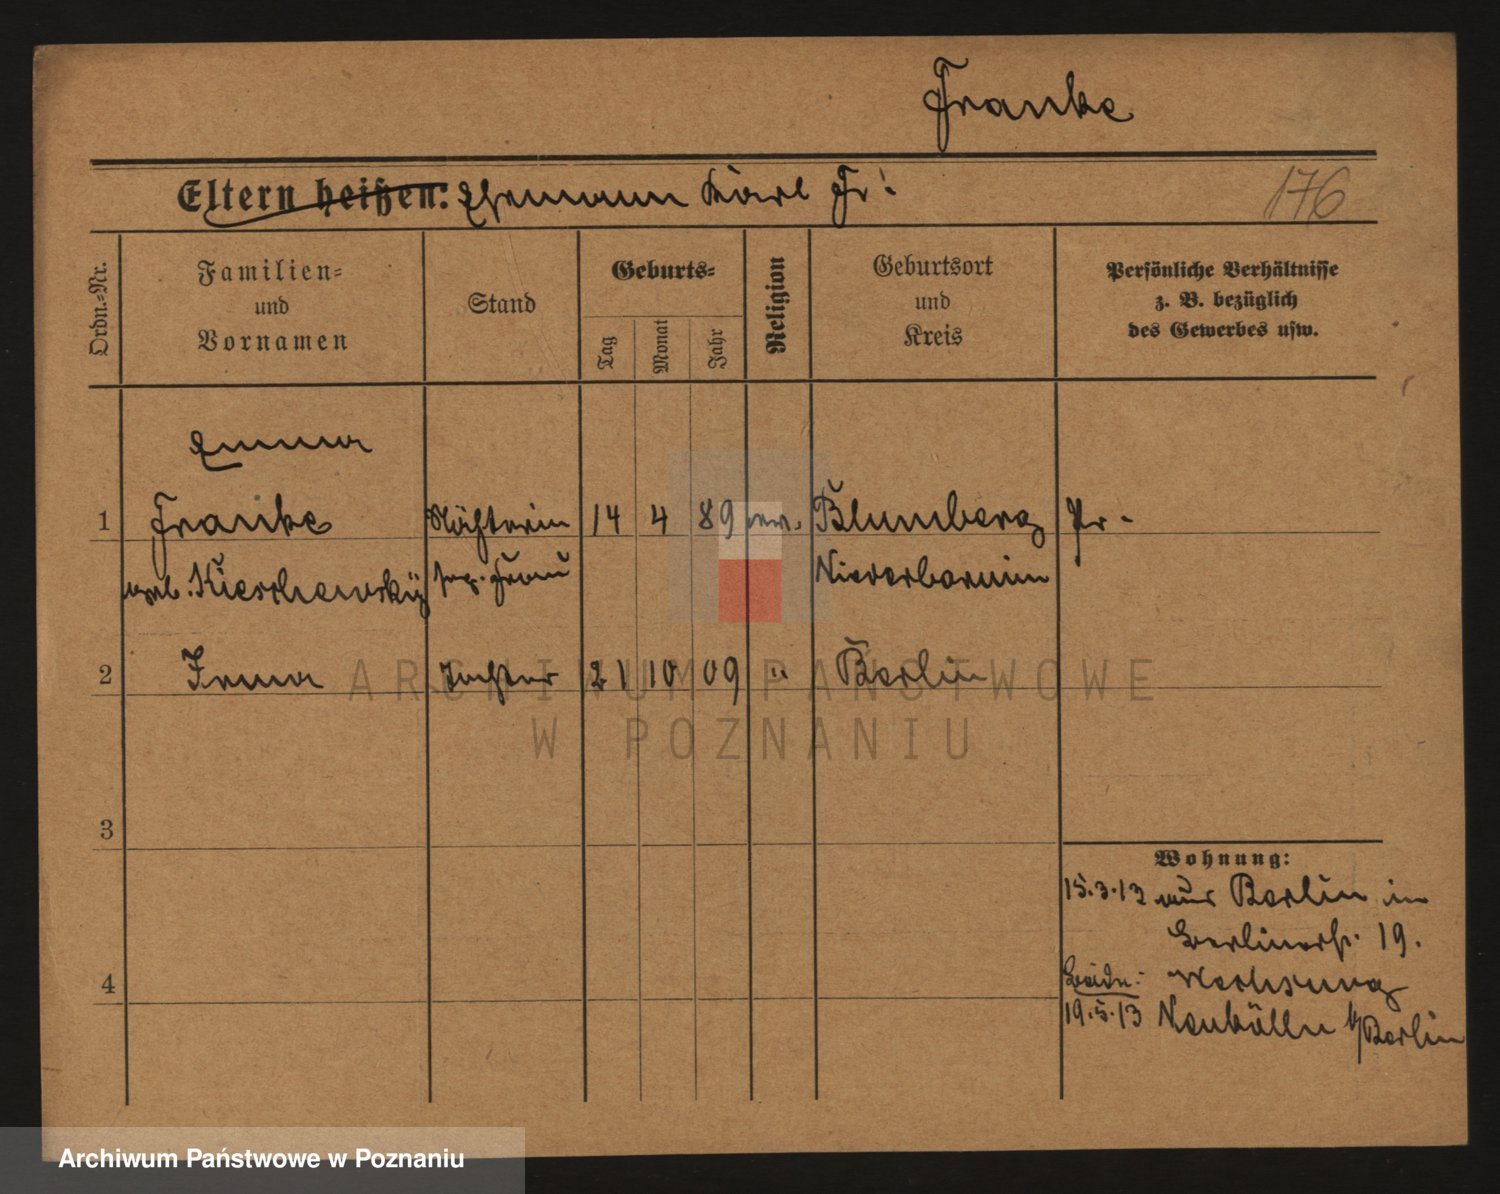 Franke
Eltern heißen: Ehemann Karl Fr:
176
Ordn.-Nr.
Familien-
und
Vornamen
Stand
Geburts-
Tag
Monat
Jahr
Religion
Geburtsort
und
Kreis
Persönliche Verhältnisse
z. B. bezüglich
des Gewerbes usw.
Emma
1 Franke Nähterin 14 4 89 ev. Blumberg Pr.
geb. Frau Niederbarnim
2 Irma Tochter 21 10 09 " Berlin
3
4
Wohnung:
15.3.13 aus Berlin in
Berlinerstr. 19.
Beide:
19.5.13 Neukölln b/Berlin
ARCHIWUM PAŃSTWOWE
W POZNANIU
Archiwum Państwowe w Poznaniu